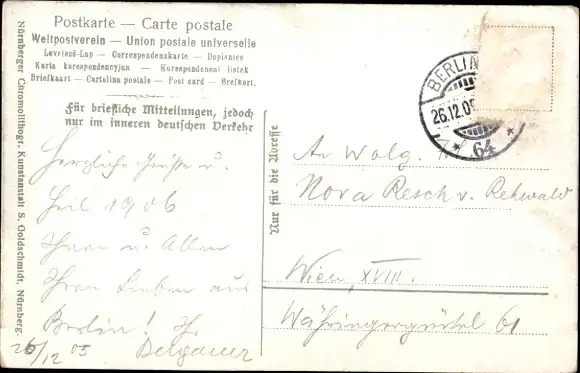 Postkarte — Carte postale
Weltpostverein — Union postale universelle
Levelező-Lap — Correspondenzkarte — Dopisnice
Karta korespondencyjna — Korespondencni listek
Briefkaart — Cartolina postale — Post card — Brefkort.
Für briefliche Mitteilungen, jedoch
nur im inneren deutschen Verkehr
Nürnberger Chromolithogr. Kunstanstalt S. Goldschmidt, Nürnberg.
Nur für die Adresse
BERLIN
26.12.05
* 64 *
Herzliche Grüße u.
Heil 1906
Ihnen u. Allen
Ihren Lieben aus
Berlin! Ihr
26/12 05
An Wolg.
Nora Resch v. Rehwald
Wien, XVIII.
Währingergürtel 61